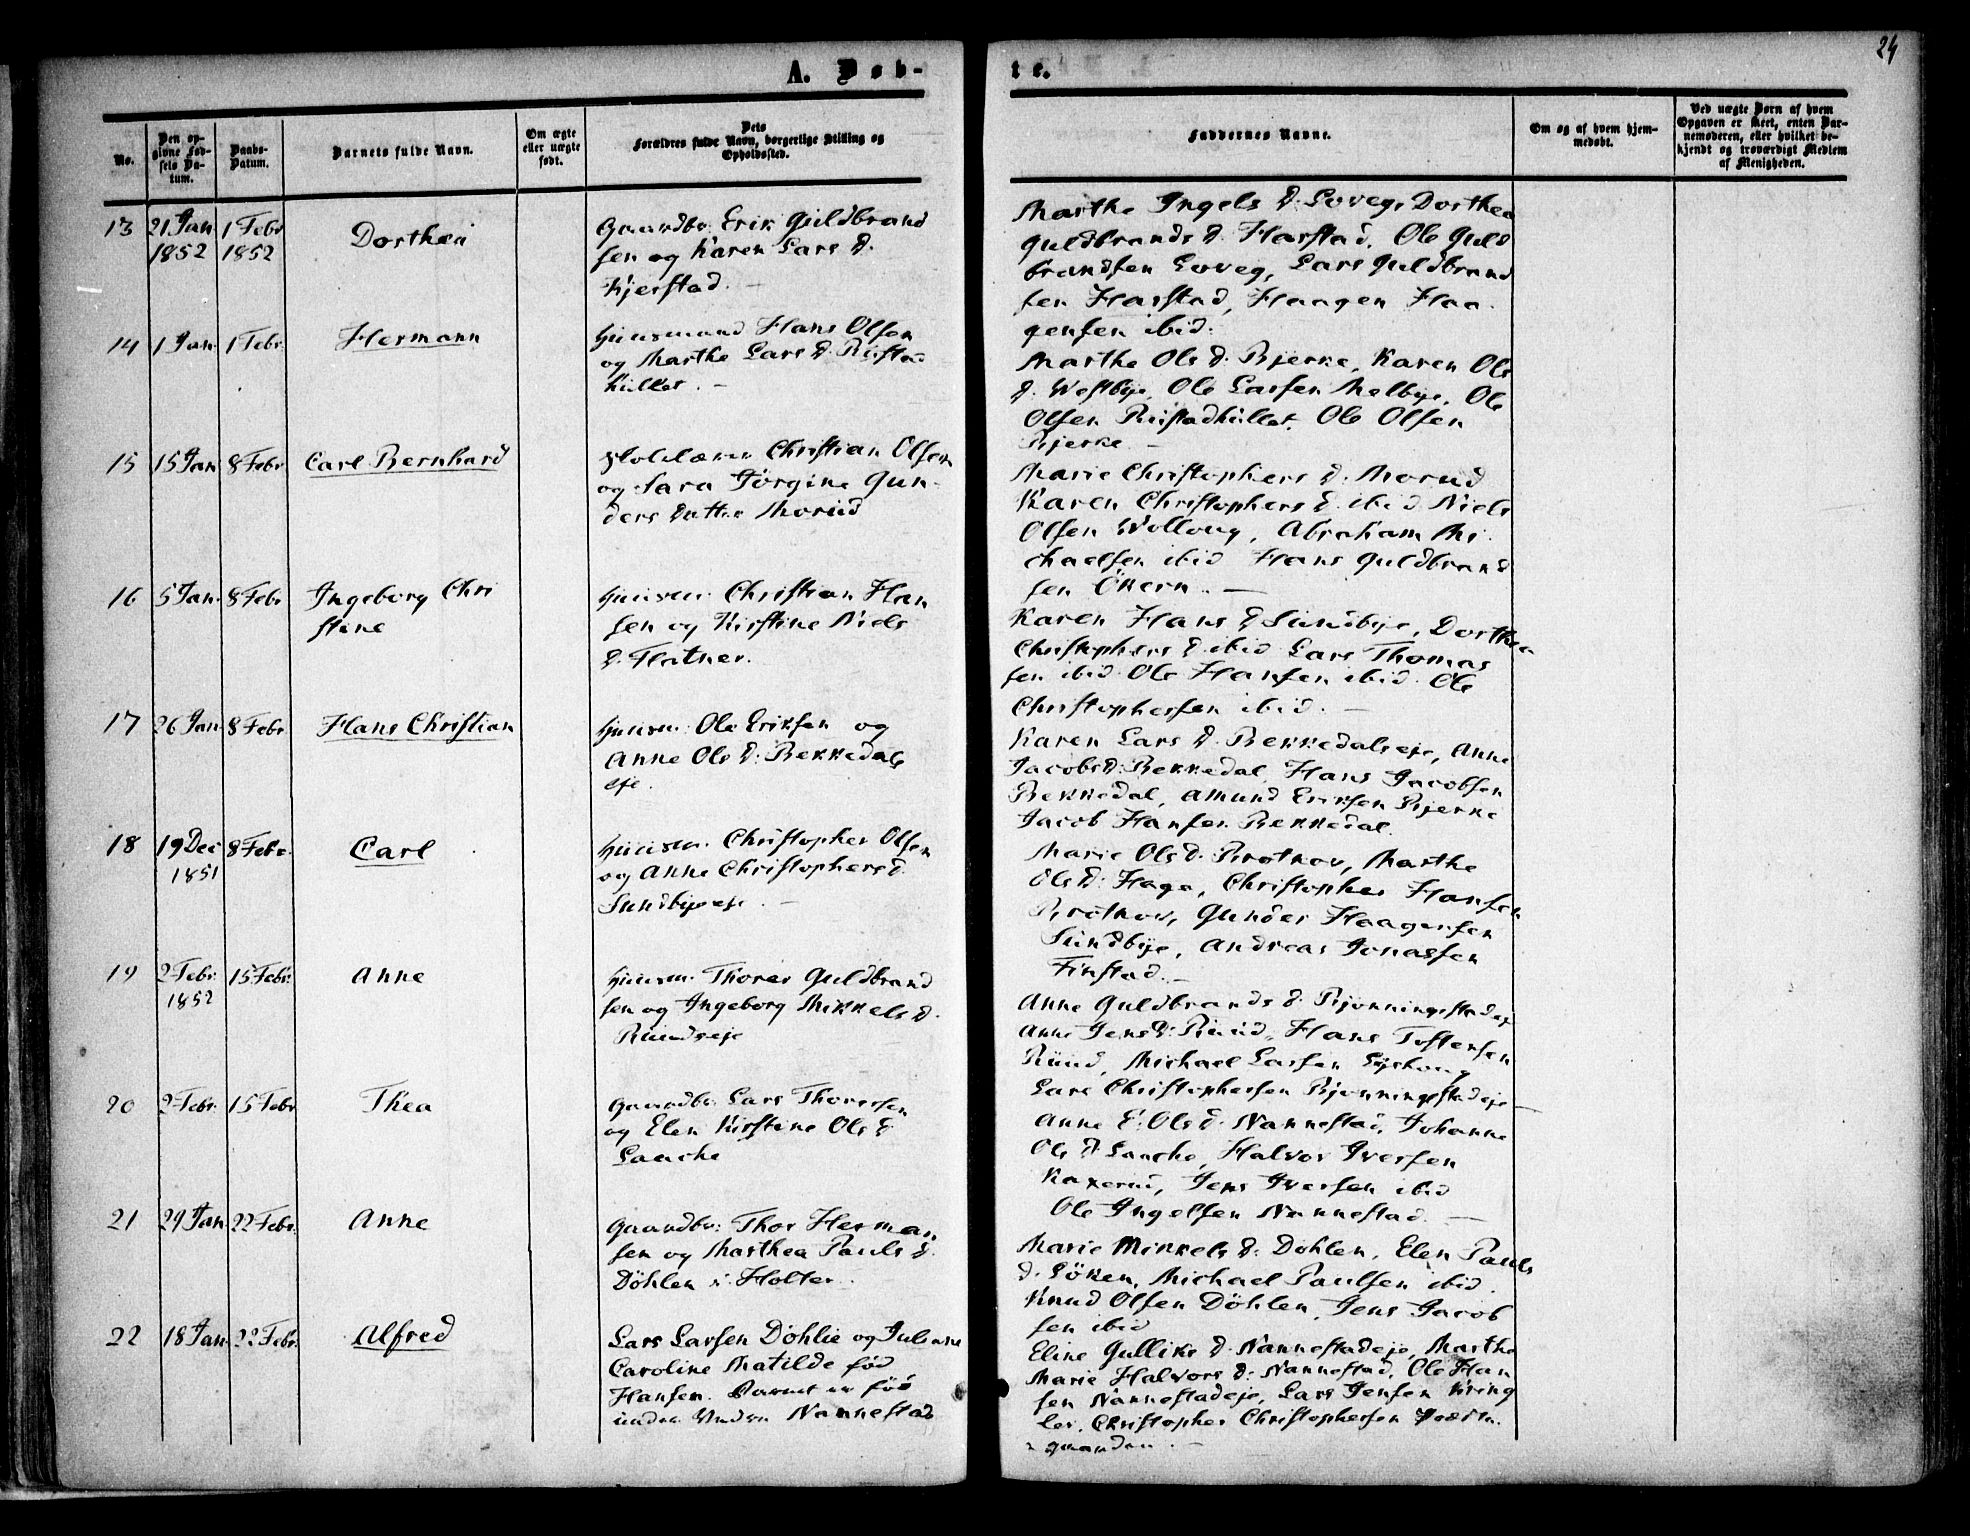 24
A. Døb-
te.
No.
Den op-
givne Fød-
sels Da-
tum.
Daabs-
Datum.
Barnets fulde Navn.
Om ægte
eller uægte
født.
Dets
Forældres fulde Navn, borgerlige Stilling og
Opholdssted.
Faddernes Navne.
Om og af hvem hjem-
medøbt.
Ved uægte Børn af hvem
Opgaven er skeet, enten Bar-
nemoderen, eller hvilket be-
kjendt og troværdigt Medlem
af Menigheden.
13
21 Jan
1852
1 Febr
1852
Dorthea
Gaardbr: Erik Guldbrand
sen og Karen Lars D.
Kjerstad. -
Marthe Ingels D: Loveg, Dorthea
Guldbrands D. Harstad, Ole Guld
brandsen Loveg, Lars Guldbrand
sen Harstad, Haagen Haa
gensen ibid.
14
1 Jan
1 Febr.
Hermann
Huusmand Hans Olsen
og Marthe Lars D.
Marthe Ols D. Bjerke, Karen Ols
D. Westbye, Ole Larsen Melbye, Ole
Olsen Ole Olsen
Bjerke -
15
15 Jan
8 Febr
Carl Bernhard
Skolelærer Christian Olsen
og Sara Jörgine Gun-
ders Datter Morüd
Marie Christophers D. Morud
Karen Christophers D. ibid Niels
Olsen Wolloug, Abraham Mi
chaelsen ibid Hans Guldbrand
sen Ökern. -
16
5 Jan.
8 Febr
Ingeborg Chri
stine
Huusm: Christian Han
sen og Kirstine Niels
D. Flatner.
Karen Hans D Sundbye, Dorthea
Christophers D. ibid Lars Thomas
sen ibid. Ole Hansen ibid. Ole
Christophersen ibid. -
17
26 Jan
8 Febr.
Hans Christian
Huusm: Ole Eriksen og
Anne Ols D: Bekkedals
eje.
Karen Lars D. Bekkedalseje, Anne
Jacobs D: Bekkedal, Hans Jacobsen
Bekkedal, Amund Eriksen Bjerke
Jacob Hansen Bekkedal.
18
19 Dec
1851
8 Febr.
Carl
Huusm: Christopher Olsen
og Anne Christophers D.
Sundbyeeje. -
Marie Ols D. Brotnov, Marthe
Ols D: Haga, Christopher Hansen
Brotnov, Gunder Haagensen
Sundbye, Andreas Jonassen
Finstad. -
19
2 Febr.
1852
15 Febr.
Anne
Huusm. Thorer Guldbrand
sen og Ingeborg Mikkels D.
Ruudseje
Anne Guldbrands D. Bjonningstadeje
Anne Jens D: Ruud, Hans Tostensen
Rüüd, Michael Larsen
Lars Christophersen Bjonningstadeje -
20
2 Febr.
15 Febr
Thea
Gaardbr: Lars Thoresen
og Elen Kirstine Ols D
Lauche
Anne E: Ols D. Nannestad, Johanne
Ols D Lauche, Halvor Iversen
Kaxerud, Jens Iversen ibid
Ole Ingelsen Nannestad. -
21
29 Jan
22 Febr.
Anne
Gaardbr: Thor Herman
sen og Marthea Pauls D.
Döhlen i Holter.
Marie Mikkels D: Dohlen, Elen Pauls
D. Löken, Michael Paulsen ibid.
Knud Olsen Döhlen, Jens Jacob
sen ibid
22
18 Jan.
22 Febr.
Alfred
Lars Larsen Döhlie og Juliane
Caroline Matilde fød
Hansen. Barnet er fød
Nannestad
Eline Gulliks D. Nannestadeje, Marthe
Marie Halvors D: Nannestad, Ole Han
sen Nannestadeje, Lars Jensen Kring
ler, Christopher Christophersen Præste
gaarden. -